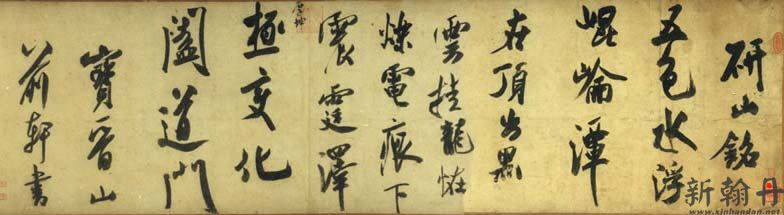 研山銘
五色水浮
崐崘潭
在頂出黑
雲挂龍怪
爍電痕下
震霆澤
厚坤
極变化
闔道門
寶晉山
前軒書
新翰丹
www.xinhandan.net